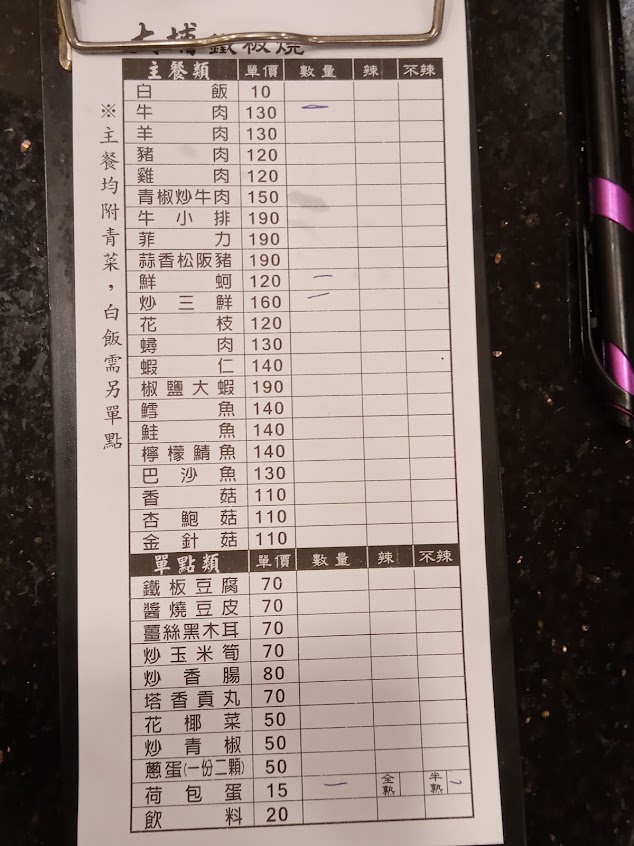 大埔鐵板燒
※主餐均附青菜，白飯需另單點
主餐類 單價 數量 辣 不辣
白飯 10
牛肉 130 一
羊肉 130
豬肉 120
雞肉 120
青椒炒牛肉 150
牛小排 190
菲力 190
蒜香松阪豬 190
鮮蚵 120 一
炒三鮮 160 一
花枝 120
蟳肉 130
蝦仁 140
椒鹽大蝦 190
鱈魚 140
鮭魚 140
檸檬鯖魚 140
巴沙魚 130
香菇 110
杏鮑菇 110
金針菇 110
單點類 單價 數量 辣 不辣
鐵板豆腐 70
醬燒豆皮 70
薑絲黑木耳 70
炒玉米筍 70
炒香腸 80
塔香貢丸 70
花椰菜 50
炒青椒 50
蔥蛋(一份二顆) 50
荷包蛋 15 一 全熟 半熟 ˇ
飲料 20